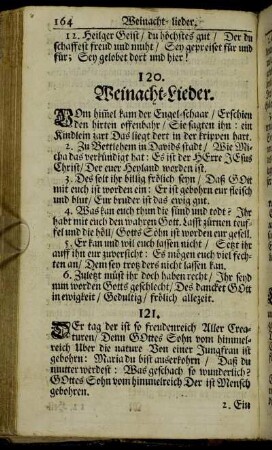 164 Weinacht- lieder.
12. Heilger Geist / du höchstes gut / Der du
schaffest freud und muht / Sey gepreiset für und
für; Sey gelobet dort und hier!
120.
Weinacht-Lieder.
VOm him̃el kam der Engel-schaar / Erschien
den hirten offenbahr / Sie sagten ihn : ein
Kindlein zart Das liegt dort in der krippen hart.
2. Zu Bettlehem in Davids stadt / Wie Mi-
cha das verkündigt hat : Es ist der HErre JEsus
Christ / Der euer Heyland worden ist.
3. Des solt ihr billig frölich seyn / Daß GOtt
mit euch ist worden ein : Er ist gebohren eur fleisch
und blut / Eur bruder ist das ewig gut.
4. Was kan euch thun die sünd und todt? Ihr
habt mit euch den wahren Gott. Lasst zürnen teuf-
fel und die höll / Gotts Sohn ist worden eur gesell.
5. Er kan und wil euch lassen nicht / Setzt ihr
auff ihn eur zuversicht : Es mögen euch viel fech-
ten an / Dem sey trotz ders nicht lassen kan.
6. Zuletzt müst ihr doch haben recht / Ihr seyd
nun worden Gotts geschlecht / Des dancket GOtt
in ewigkeit / Gedultig / frölich allezeit.
121.
DEr tag der ist so freudenreich Aller Crea-
turen / Denn GOttes Sohn vom himmel-
reich Über die nature Von einer Jungfrau ist
gebohrn : Maria du bist auserkohrn / Daß du
mutter werdest : Was geschach so wunderlich?
GOttes Sohn vom himmelreich Der ist Mensch
gebohren.
2. Ein